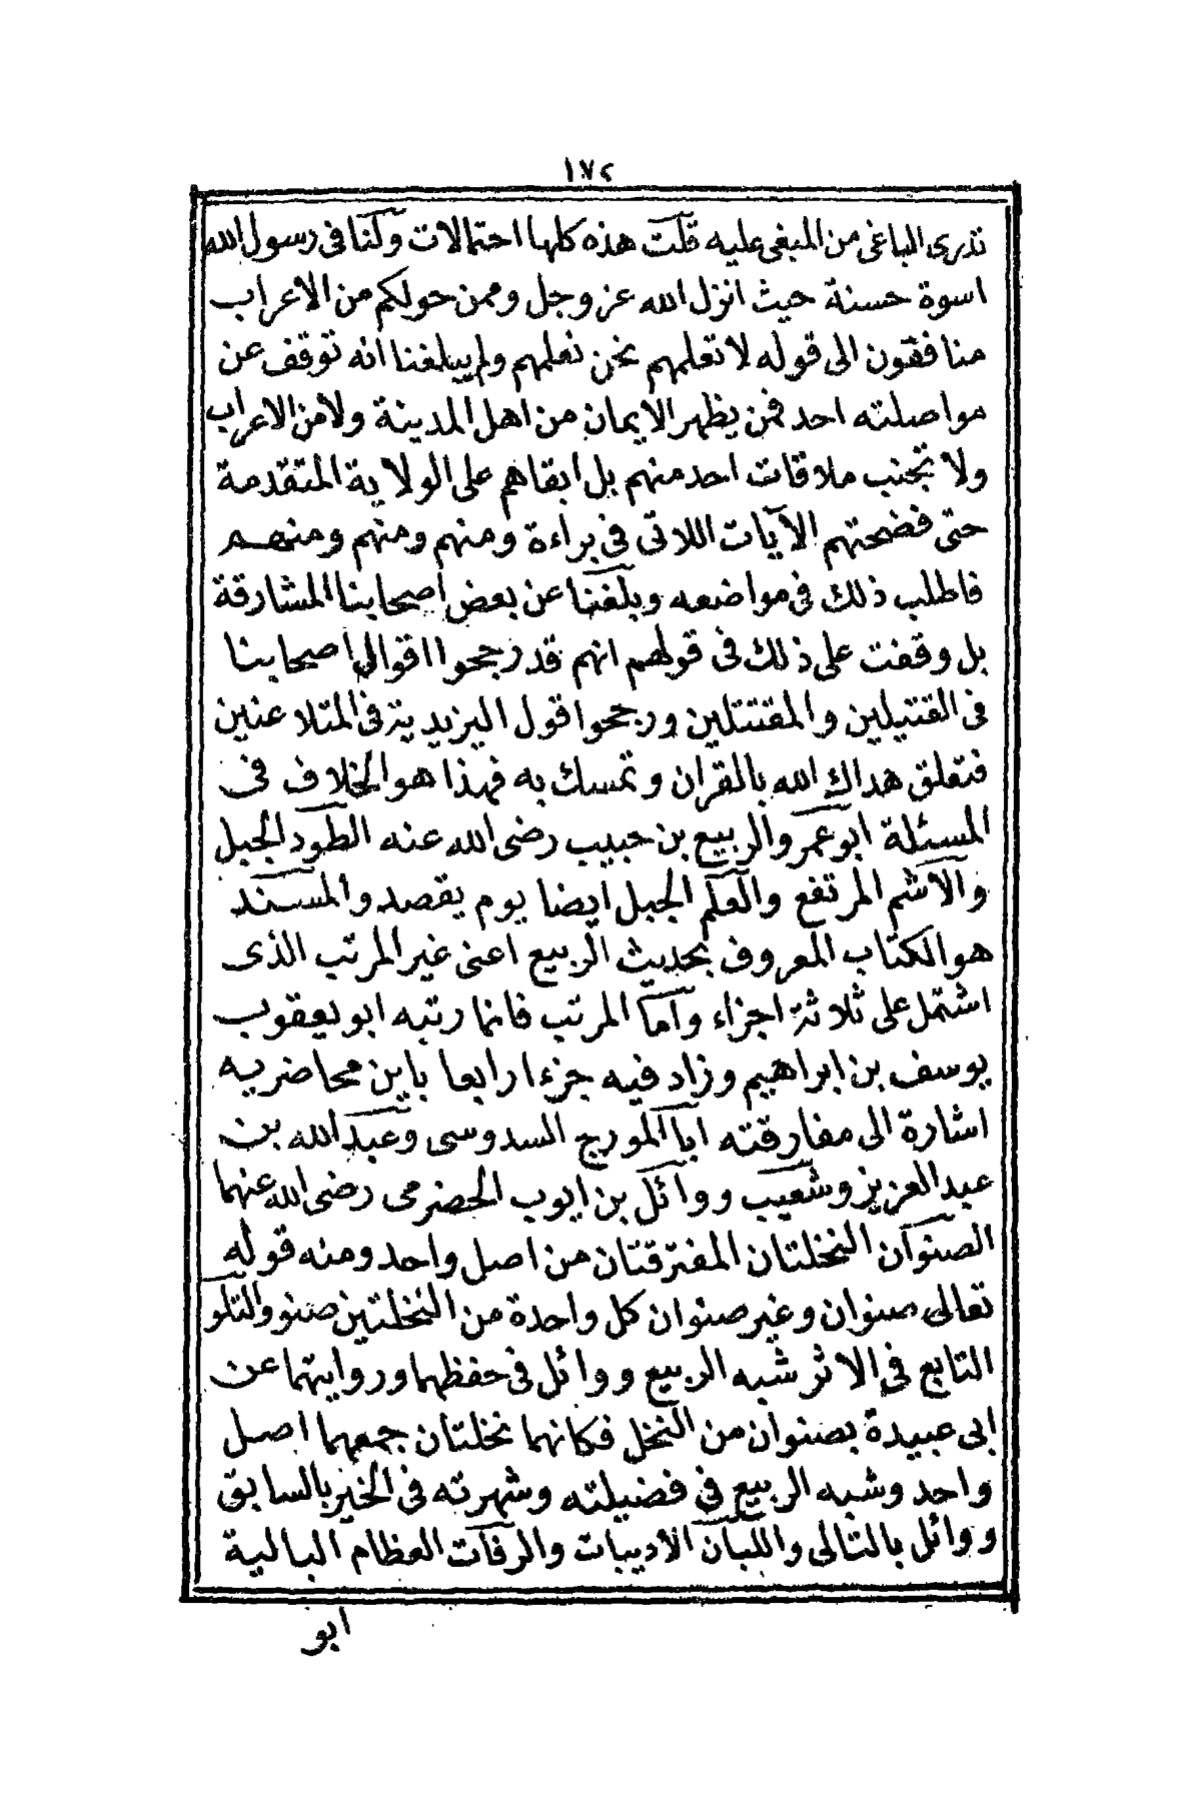 ١٧٢
تدرى الباغى من المبغى عليه قلت هذه كلها احتمالات وكنا فى رسول الله
اسوة حسنة حيث انزل الله عز وجل وممن حولكم من الاعراب
منافقون الى قوله لا تعلمهم نحن نعلمهم ولم يبلغنا انه توقف عن
مواصلته احد فمن يظهر الايمان من اهل المدينة ولا من الاعراب
ولا تجنب ملاقات احد منهم بل ابقاهم على الولاية المتقدمة
حتى فضحتهم الآيات اللاتى فى براءة ومنهم ومنهم ومنهم
فاطلب ذلك فى مواضعه وبلغنا عن بعض اصحابنا المشارقة
بل وقفت على ذلك فى قولهم انهم قد رجحوا اقوال اصحابنا
فى القتيلين والمقتتلين ورجحوا قول اليزيدية فى المتلاعنين
فتعلق هداك الله بالقران وتمسك به فهذا هو الخلاف فى
المسئلة ابو عمرو الربيع بن حبيب رضى الله عنه الطود الجبل
والاشم المرتفع والعلم الجبل ايضا يوم يقصد والمسند
هو الكتاب المعروف بحديث الربيع اعنى غير المرتب الذى
اشتمل على ثلاثة اجزاء واما المرتب فانما رتبه ابو يعقوب
يوسف بن ابراهيم وزاد فيه جزءا رابعا باين محاضريه
اشارة الى مفارقته ابا المورج السدوسى وعبد الله بن
عبد العزيز وشعيب ووائل بن ايوب الحضرمى رضى الله عنهما
الصنوان النخلتان المفترقتان من اصل واحد ومنه قوله
تعالى صنوان وغير صنوان كل واحدة من النخلتين صنو والتلو
التابع فى الاثر شبه الربيع ووائل فى حفظهما وروايتهما عن
ابى عبيدة بصنوان من النخل فكانهما نخلتان جمعهما اصل
واحد وشبه الربيع فى فضيلته وشهرته فى الخير بالسابق
ووائل بالتالى واللبان الاديبات والرفات العظام البالية
ابو